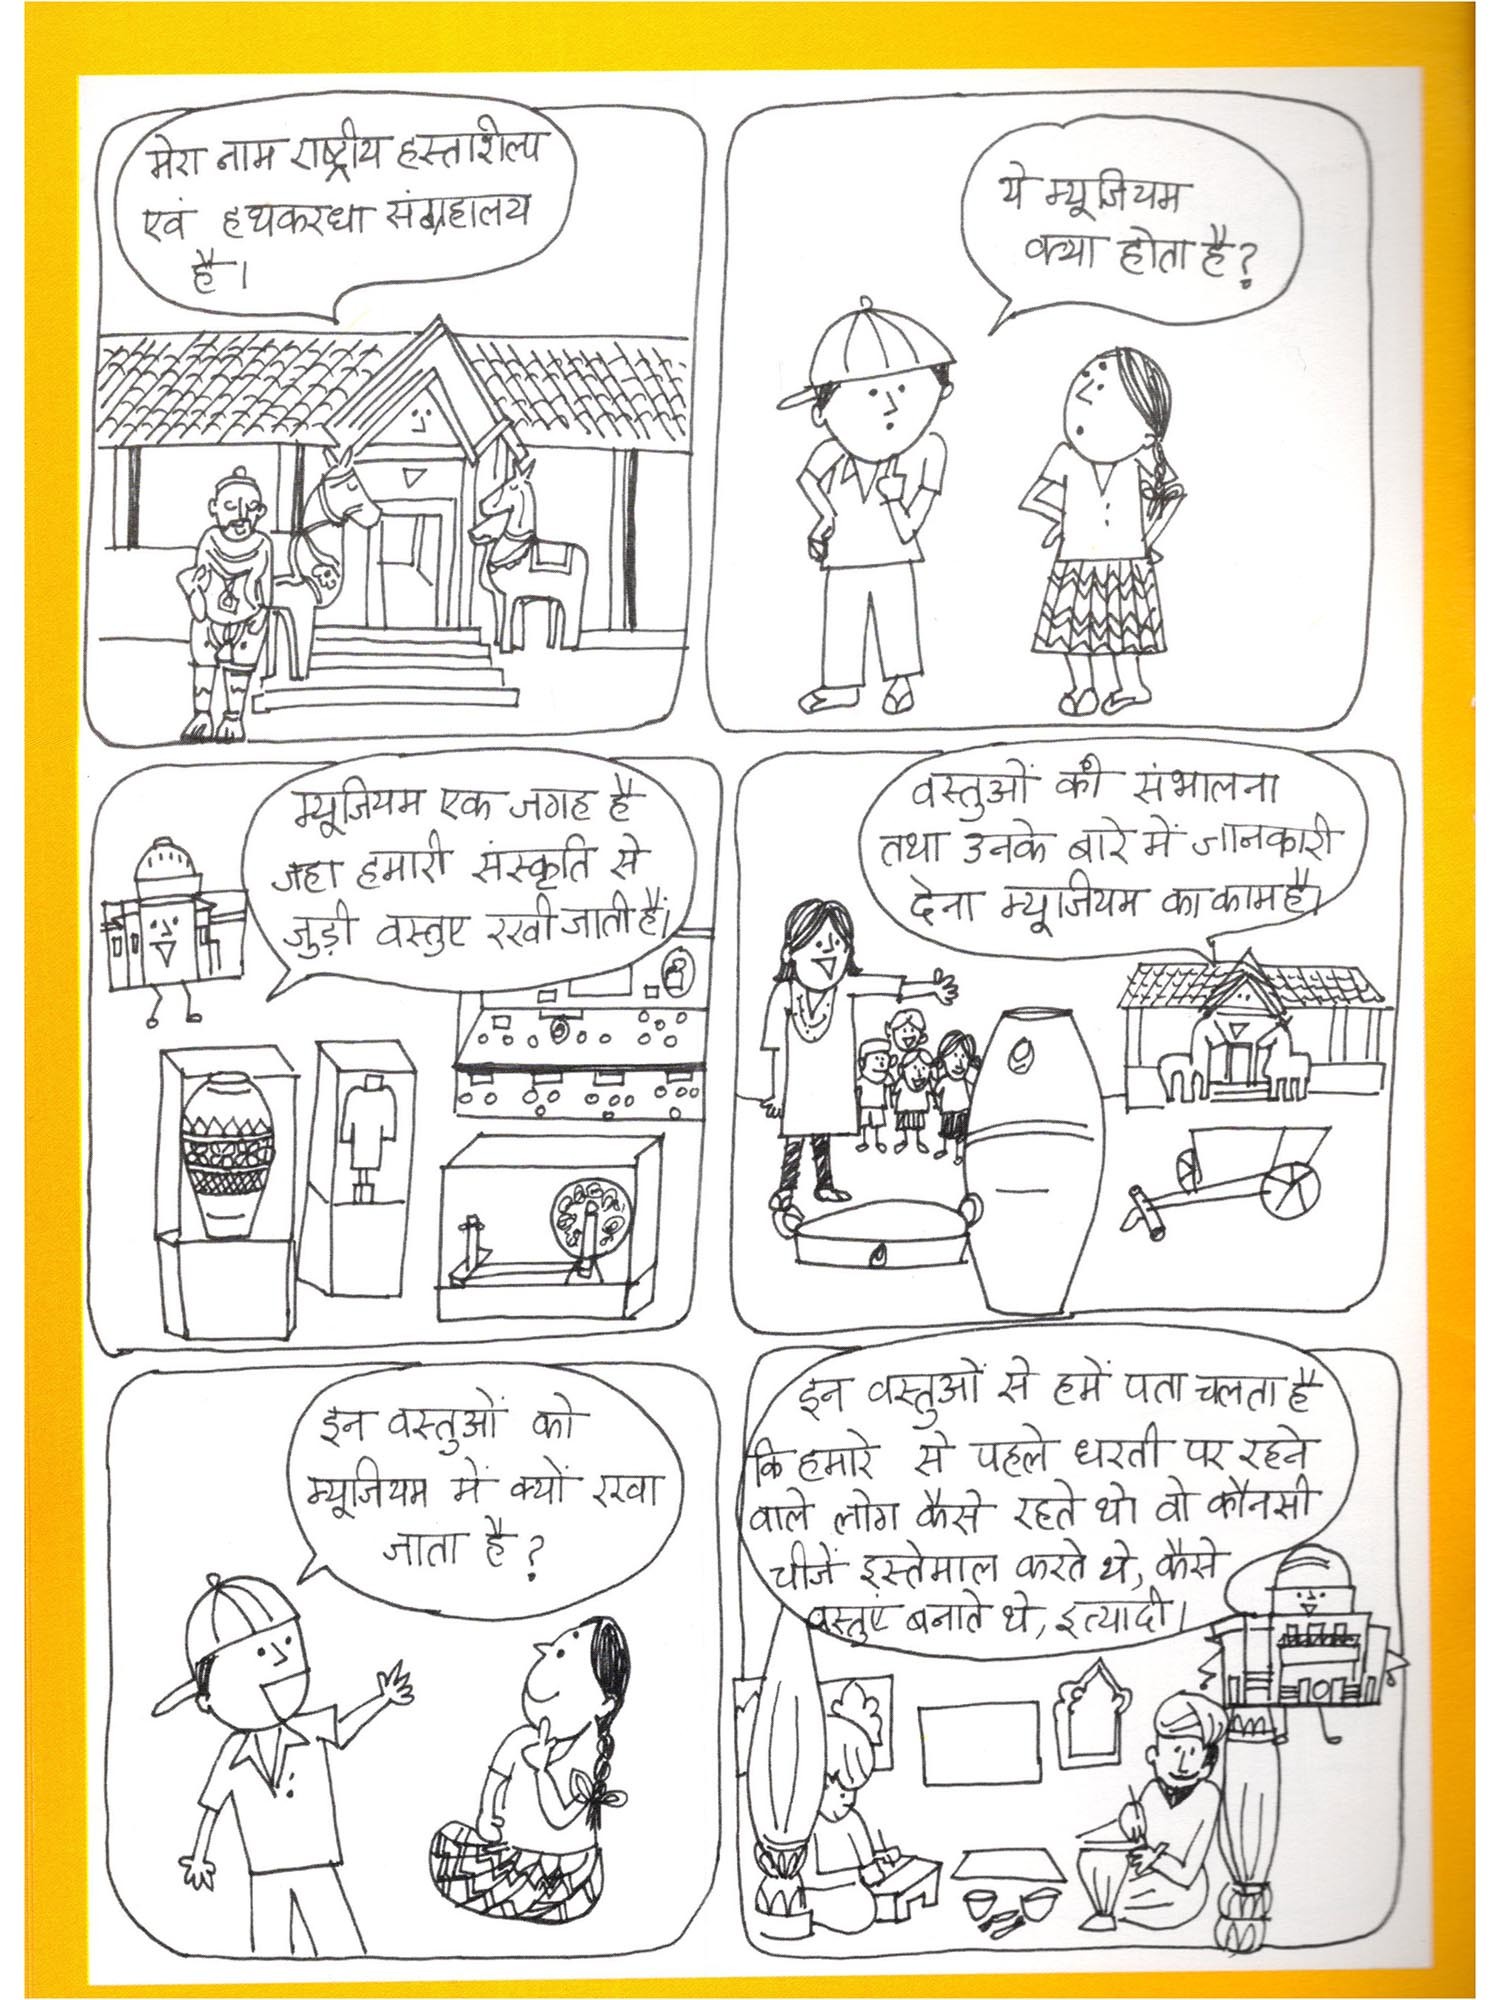 मेरा नाम राष्ट्रीय हस्ताशिल्प
एवं हथकरधा संग्रहालय
है।
ये म्यूजियम
क्या होता है?
म्यूजियम एक जगह है
जहा हमारी संस्कृति से
जुड़ी वस्तुए रखी जाती हैं।
वस्तुओं की संभालना
तथा उनके बारे में जानकारी
देना म्यूजियम का काम है।
इन वस्तुओं को
म्यूजियम में क्यों रखा
जाता है?
इन वस्तुओं से हमें पता चलता है
कि हमारे से पहले धरती पर रहने
वाले लोग कैसे रहते थे। वो कौनसी
चीजें इस्तेमाल करते थे, कैसे
वस्तुएं बनाते थे, इत्यादी।